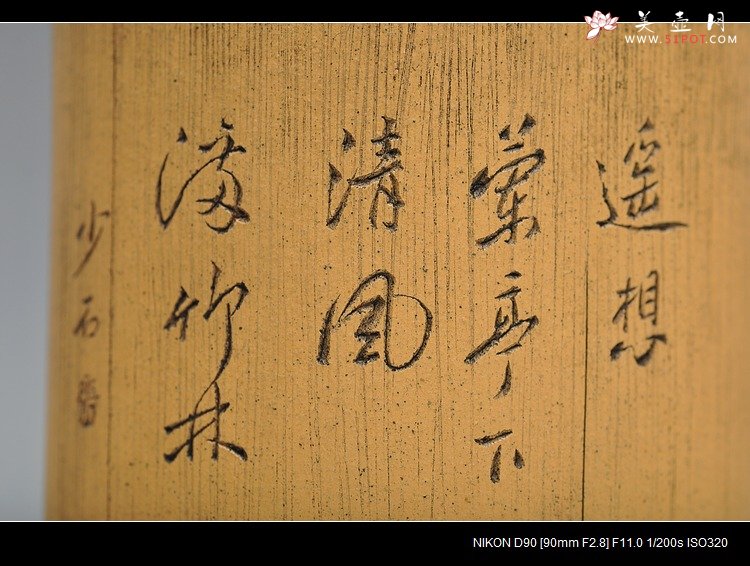 美壶网
WWW.51POT.COM
遥想
蘭亭下
清風
满竹林
少石
NIKON D90 [90mm F2.8] F11.0 1/200s ISO320